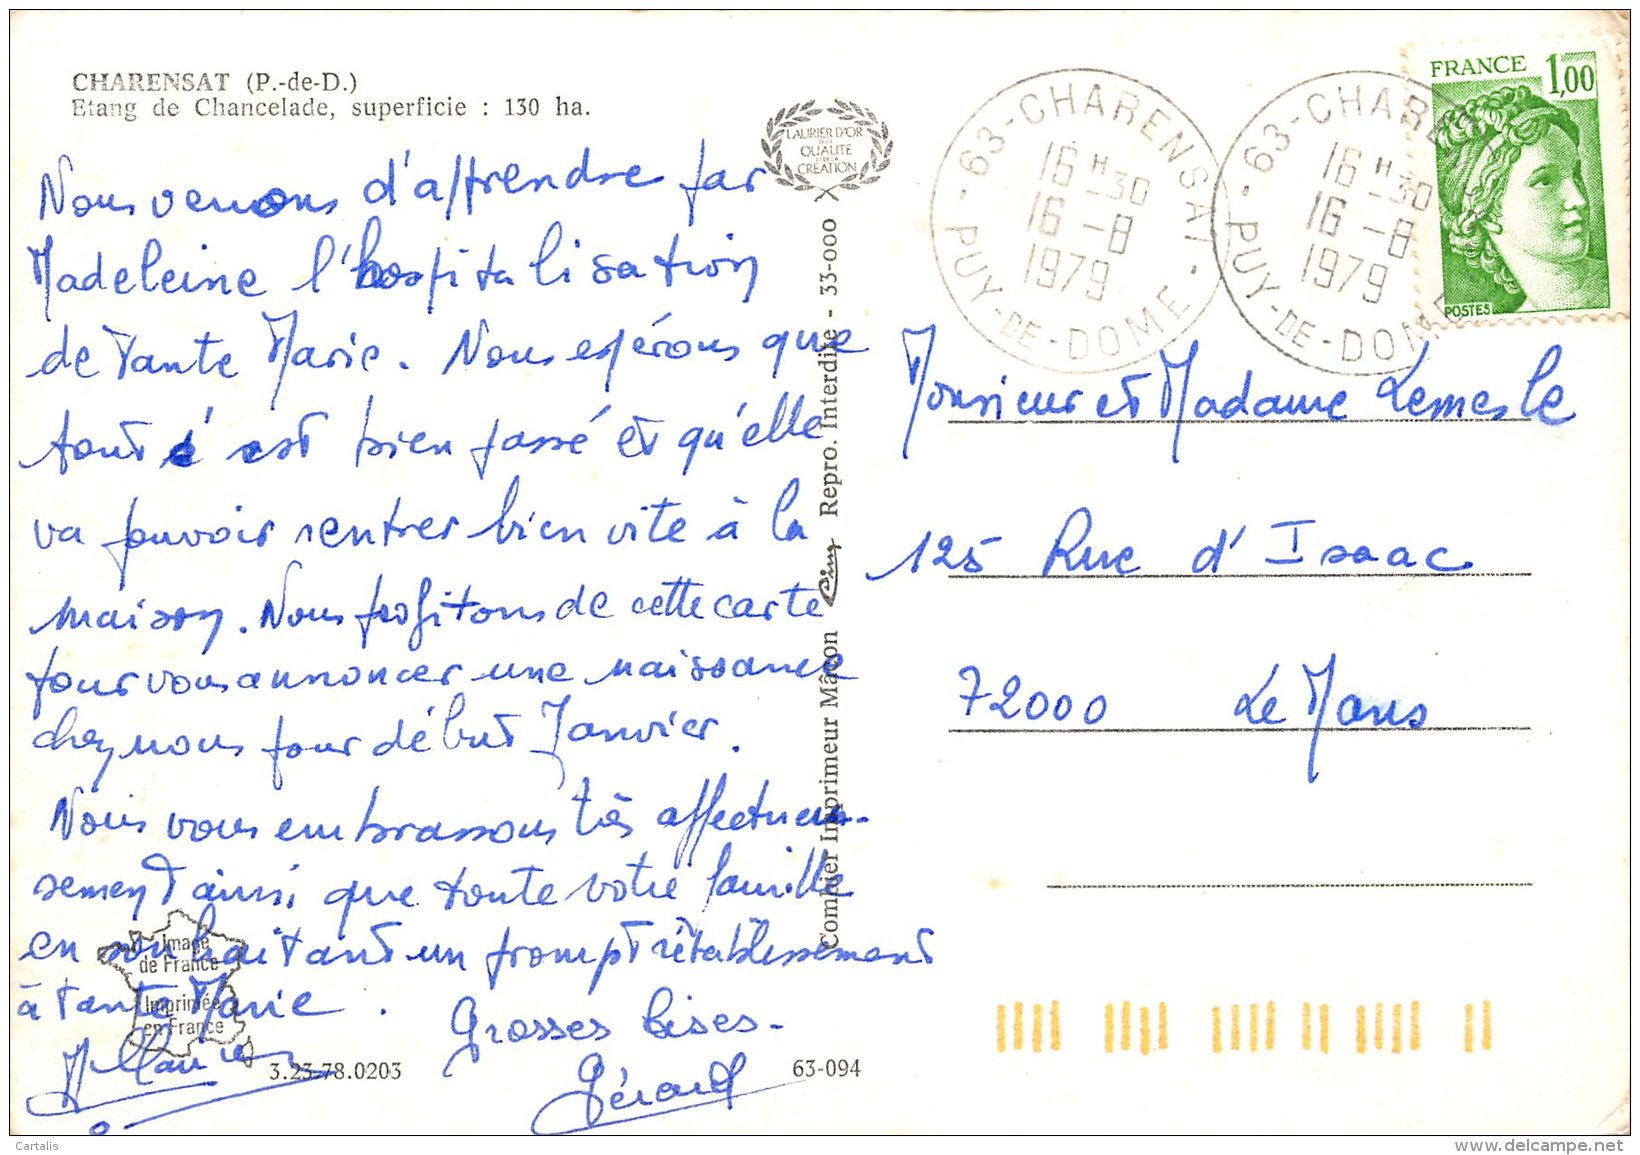 CHARENSAT (P.-de-D.)
Etang de Chancelade, superficie : 130 ha.
Nous venons d'apprendre par
Madeleine l'hospitalisation
de Tante Marie. Nous espérons que
tout s'est bien passé et qu'elle
va pouvoir rentrer bien vite à la
maison. Nous profitons de cette carte
pour vous annoncer une naissance
chez nous pour début Janvier.
Nous vous embrassons très affectueu-
sement ainsi que toute votre famille
en souhaitant un prompt rétablissement
à Tante Marie.
Grosses bises.
Gérard
Image
de France
Imprimée
en France
3.23.78.0203
63-094
LAURIER D'OR
DE LA
QUALITE
ET DE LA
CREATION
Combier Imprimeur Mâcon Cim Repro. Interdite - 33-000
63-CHARENSAT - PUY-DE-DOME -
16 H -30
16 -8
1979
63-CHARENSAT - PUY-DE-DOME -
16 H -30
16 -8
1979
FRANCE 1,00
POSTES
Monsieur et Madame Lemesle
125 Rue d'Isaac
72000 Le Mans
Cartalis
www.delcampe.net